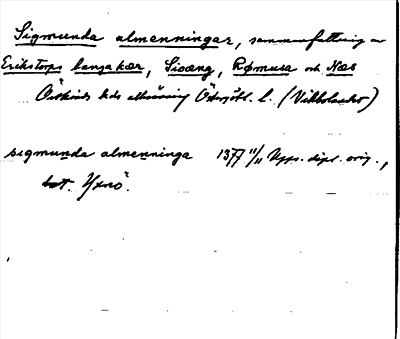 Sigmunda almenningar, sammanfattning av
Erikstorps langa kær, Sioæng, Rømusa och Næs
Östkinds hds allmänning Östergötl. l. (Vikbolandet)
sigmunda almenninga 1377 11/11 Upps. dipl. orig.,
bet. Yxnö.